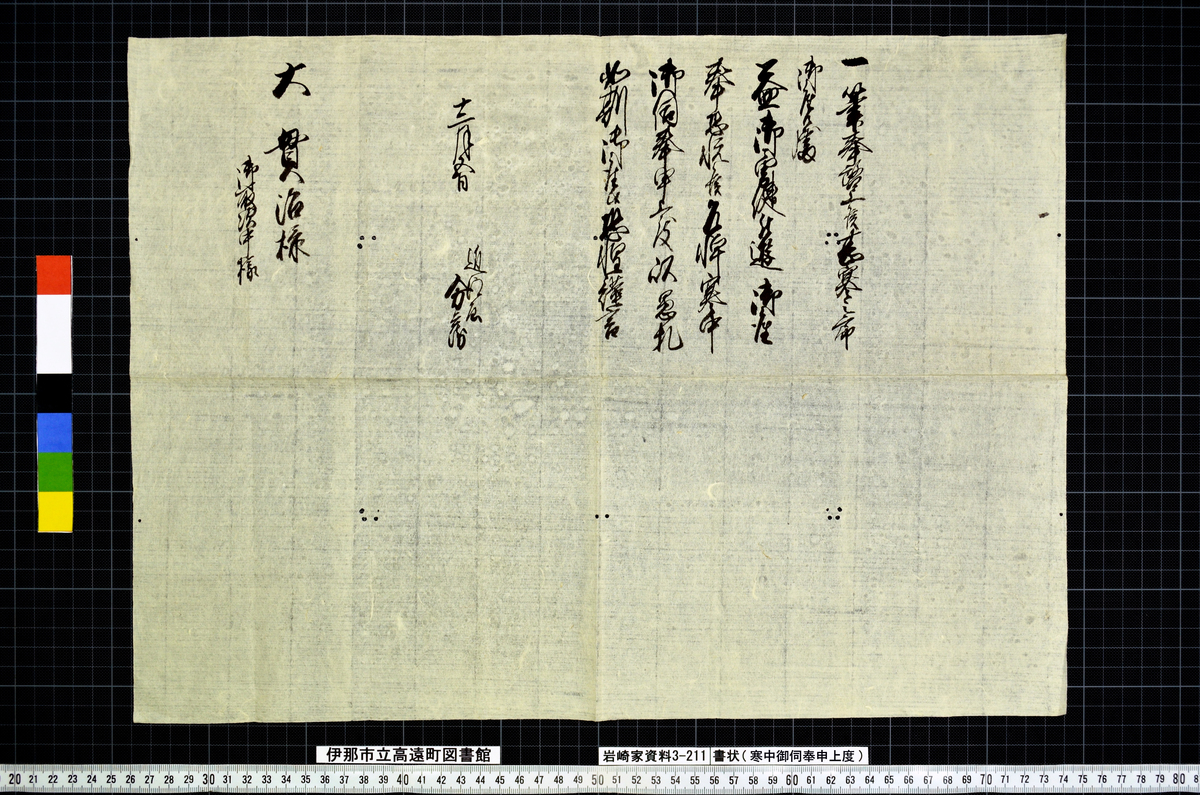 一筆奉啓上候甚寒之節
御座候処
益御勇健被遊御座
奉恐悦候乍憚寒中
御伺奉申上度以愚札
如斯御座候恐惶謹言
十二月
大貫治様
御取次中様
伊那市立高遠町図書館
岩崎家資料3-211 書状(寒中御伺奉申上度)
20 21 22 23 24 25 26 27 28 29 30 31 32 33 34 35 36 37 38 39 40 41 42 43 44 45 46 47 48 49 50 51 52 53 54 55 56 57 58 59 60 61 62 63 64 65 66 67 68 69 70 71 72 73 74 75 76 77 78 79 80